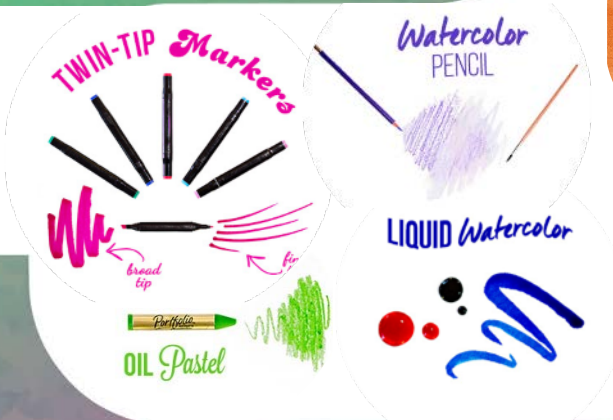 TWIN-TIP Markers
broad
tip
Watercolor
PENCIL
LIQUID Watercolor
Portfolio
OIL Pastel